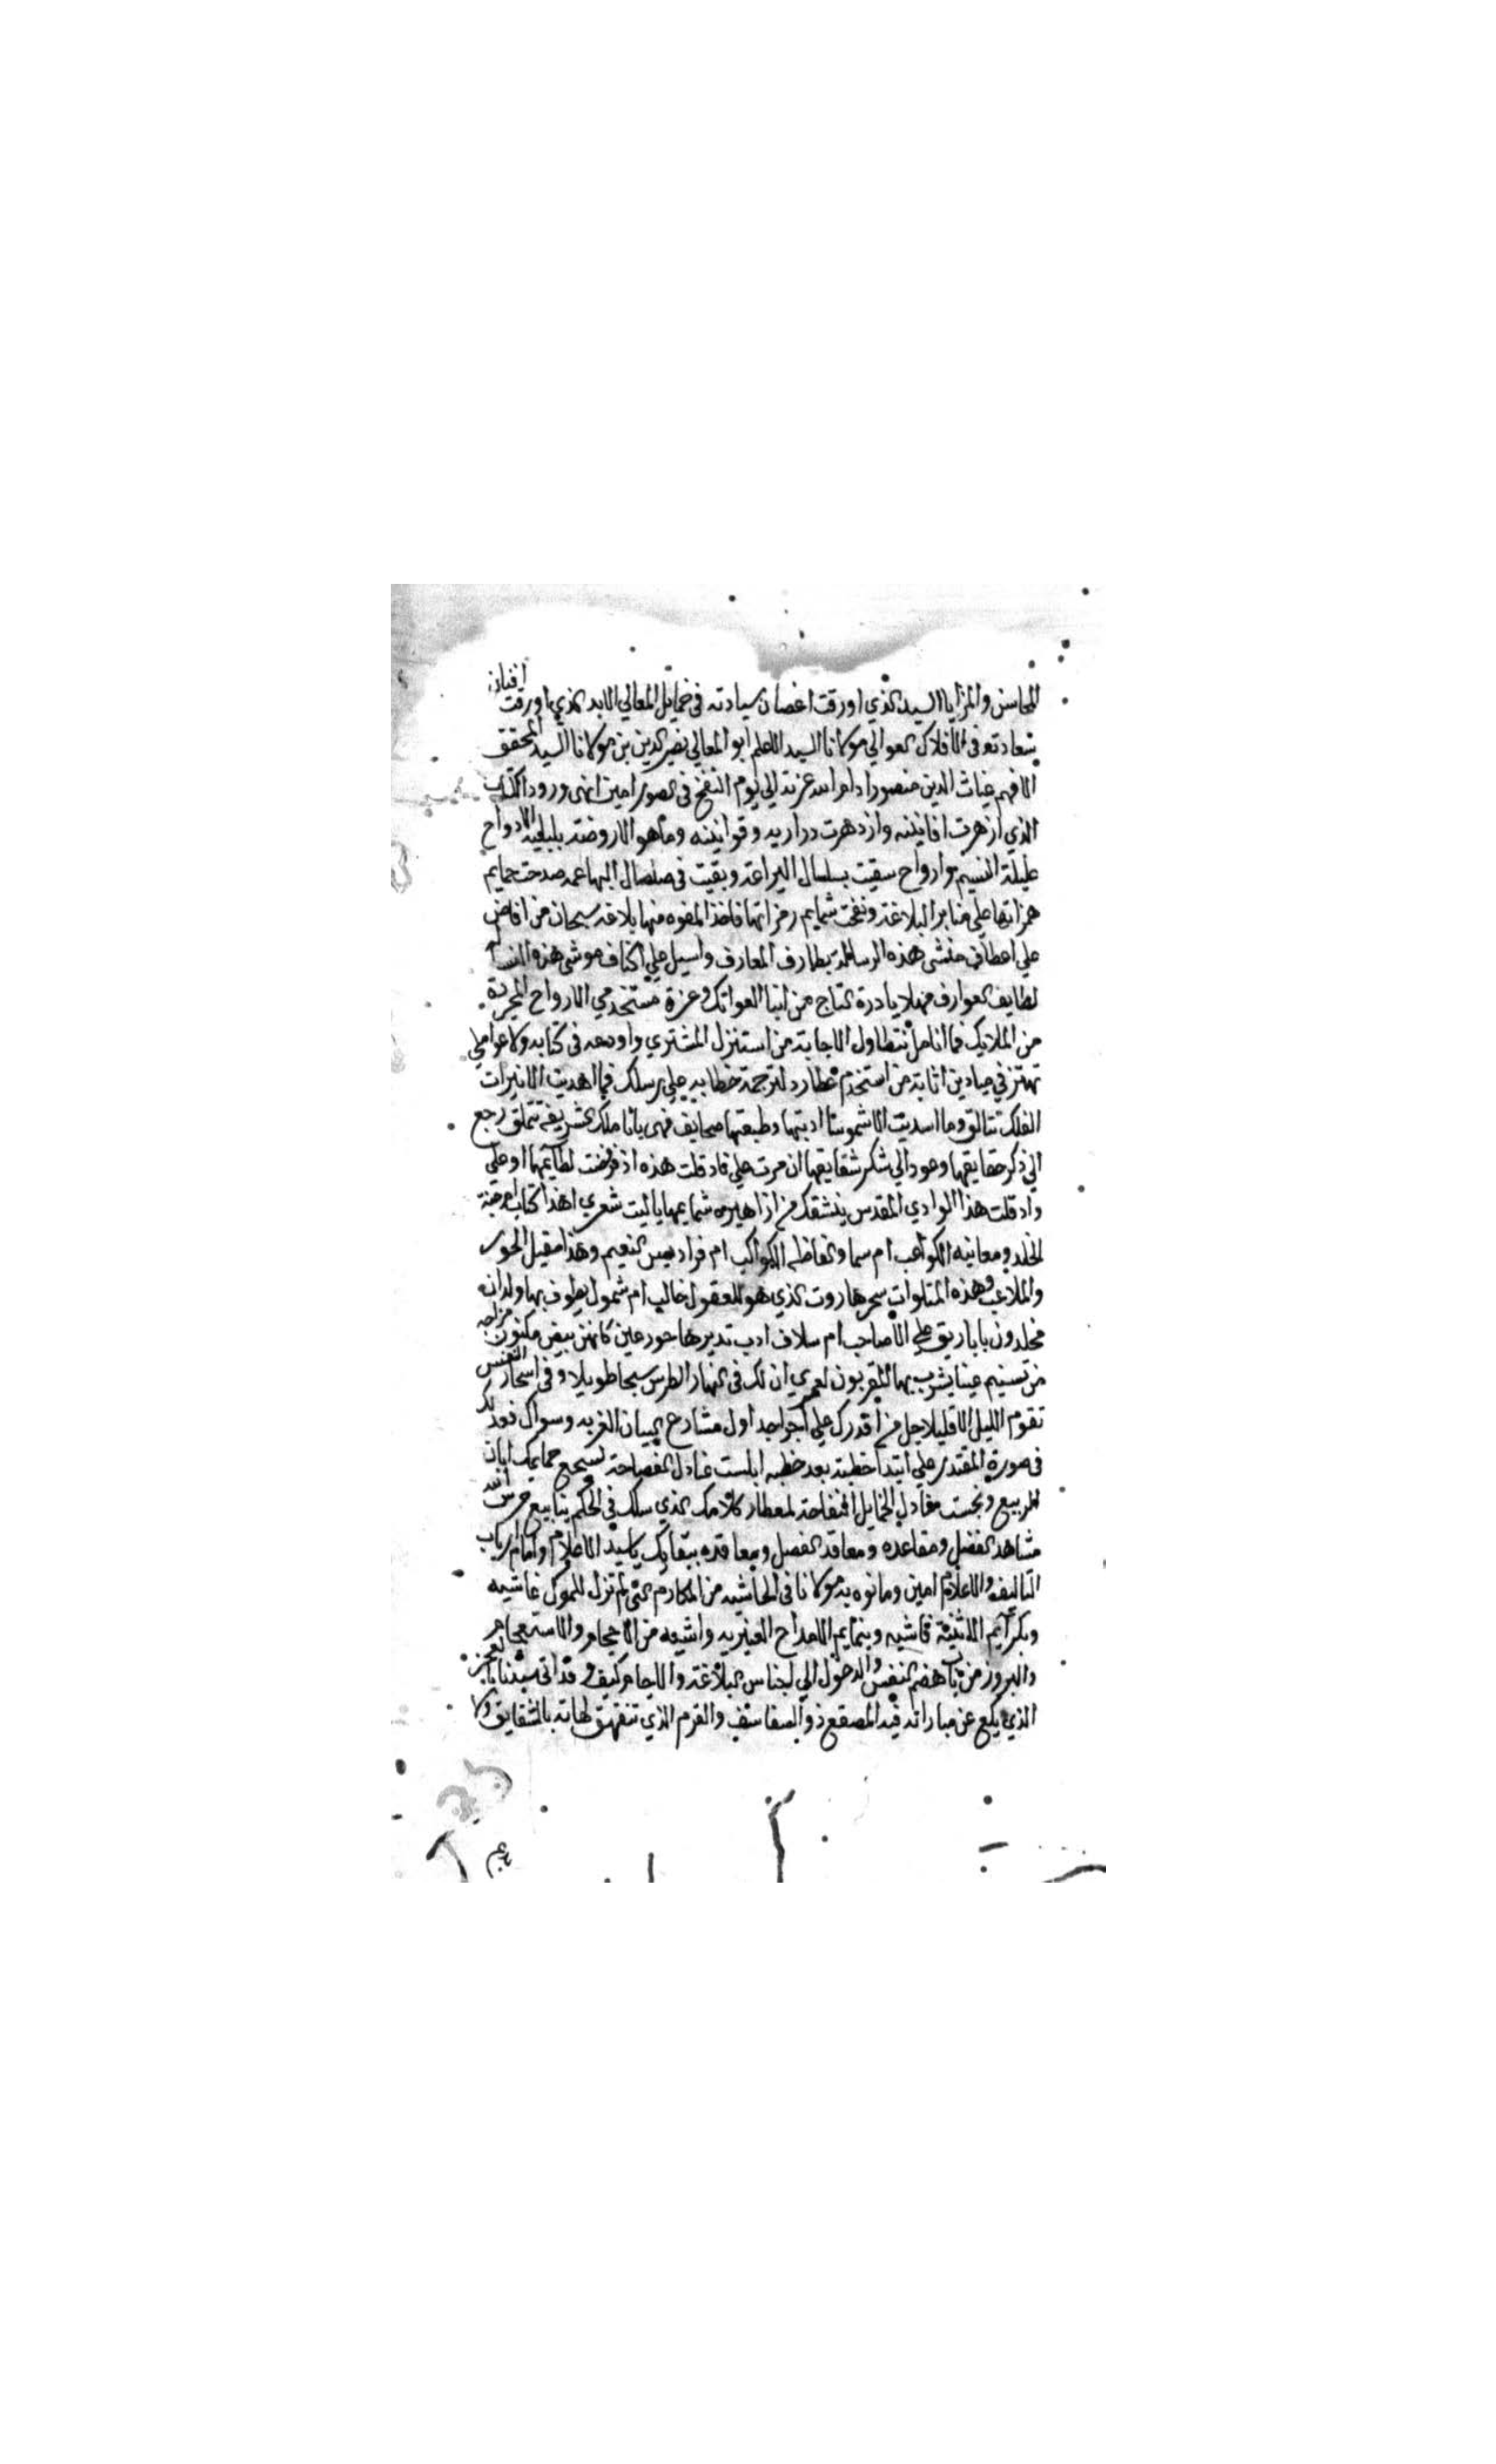 المحاسن والمزايا السيد الذي اورقت اغصان سيادته في خمايل المعالي الابد الذي اورقت افنان
سعادته في الافلاك العوالي مولانا السيد الاعلم ابو المعالي نصير الدين بن مولانا السيد المحقق
الافهم غياث الدين منصور ادام الله عزته الي يوم النفخ في الصور امين انهى ورود الكتاب
الذي ازهرت افانينه وازدهرت دراريه وقوانينه وما هو الا روضة بليلية الادواح
عليلة النسيم وادواح سقيت بسلسال البراعة وبقيت في صلصال صدحت حمايم
همزاتها علي منابر البلاغة ونفحت شمايم رمزاتها فاخذ المفوه منها بلاغه سبحان من افاض
علي اعطاف منشي هذه الرسالة بطارف المعارف واسبل علي اكناف موشي هذه
لطايف العوارف فمهلا يا درة التاج من ابنا العواتك وغرة مستخدمي الارواح المجردة
من الملايك فما انامل تتطاول الاجابة من استنزل المشتري واودعه في كتابه ولا عواملي
تهتز في ميادين اثابة من استخدم عطارد لترجمة خطابه علي رسلك فما اهديت الا نيرات
الفلك تتالق وما اسديت الا شموسا ادبتها وطبعتها صحايف فهي باناملك الشريفة تتملق رجع
الي ذكر حقايقها وعود الي شكر شقايقها ان مرت علي ناد قلت هذه اذ فضت لطايمها او علي
واد قلت هذا الوادي المقدس ينشقك من ازاهيره شمايمها يا ليت شعري اهذا كتاب ام جنة
الخلد ومعانيه الكواعب ام سما والفاظه الكواكب ام فراديس النعيم وهذا مقيل الحور
والملاعب وهذه المتلوات سحر هاروت الذي هو للعقول خالب ام شمول يطوف بها ولدان
مخلدون باباريق علي الاصاحب ام سلاف ادب تديرها حور عين كانهن بيض مكنون مزاجه
من تسنيم عينا يشرب بها المقربون لعمري ان لك في نهار الطرس سبحا طويلا وفي اسحار النفس
تقوم الليل الا قليلا جل من اقدرك علي اول مشارع البيان الغريه وسواك
في صورة المقتدر علي ابتدا خطبة بعد خطبه الفصاحة لسجع حمايمك ابان
الربيع الخمايل لمعطار كلامك الذي سلك في الحكم ينابيع حرس الله
مشاهد الفضل ومقاعده ومعاقد الفصل ومعاقده ببقايك يا سيد الاعلام وامام ارباب
التاليف والاعلام امين وما نوه به مولانا في الحاشيه من المكارم التي لم تزل للمملوك غاشيه
وبكرايم الاثنية فاشيه وبنمايم الامداح العنبريه واشيه من الاحجام والاستعجام
والبروز من باب هضم النفس والدخول الي اجناس البلاغة والالجام كيف وقد اتي سيدنا بالمعجز
الذي يكع عن مباراته فيه المصقع ذو السفاسف والقرم الذي تتفهق لهاته بالشقايق ولا